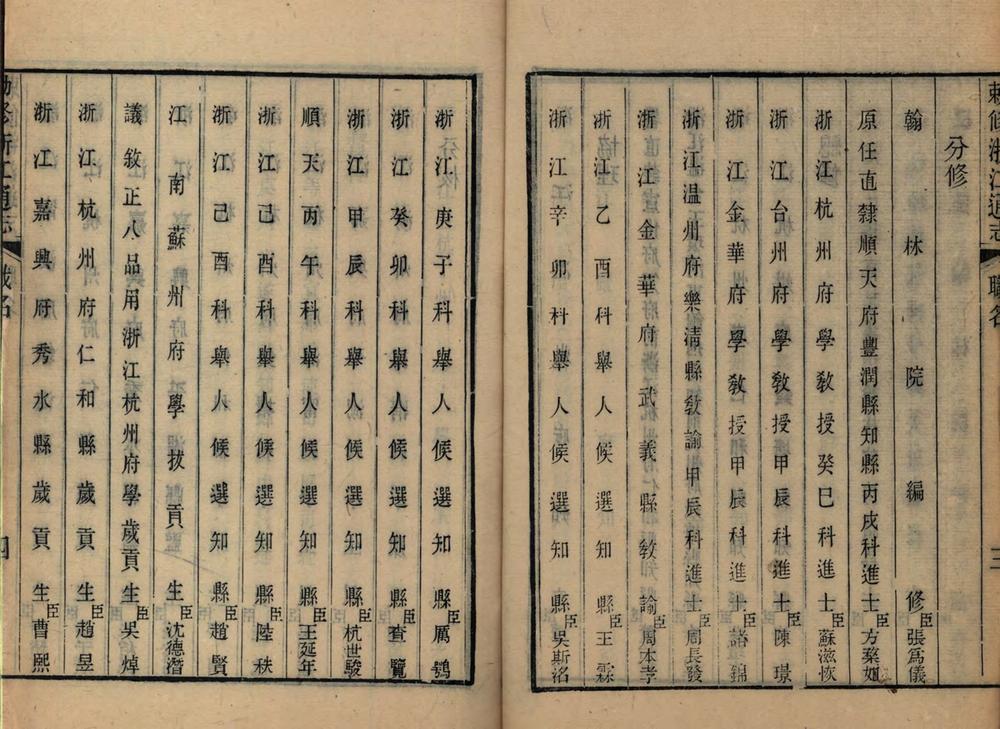 敕修浙江通志 職名 三
分修
翰林院編修臣張爲儀
原任直隸順天府豐潤縣知縣丙戌科進士臣方葇如
浙江杭州府學敎授癸巳科進士臣蘇滋恢
浙江台州府學敎授甲辰科進士臣陳璟
浙江金華府學敎授甲辰科進士臣諸錦
浙江温州府樂淸縣敎諭甲辰科進士臣周長發
浙江金華府武義縣敎諭臣周本孝
浙江乙酉科舉人候選知縣臣王霖
浙江辛卯科舉人候選知縣臣吳斯洺
浙江庚子科舉人候選知縣臣厲鶚
浙江癸卯科舉人候選知縣臣查覽
浙江甲辰科舉人候選知縣臣杭世駿
順天丙午科舉人候選知縣臣王延年
浙江己酉科舉人候選知縣臣陸秩
浙江己酉科舉人候選知縣臣趙賢
江南蘇州府學拔貢生臣沈德潛
議敘正八品用浙江杭州府學歲貢生臣吳焯
浙江杭州府仁和縣歲貢生臣趙昱
浙江嘉興府秀水縣歲貢生臣曹熙
敕修浙江通志 職名 四